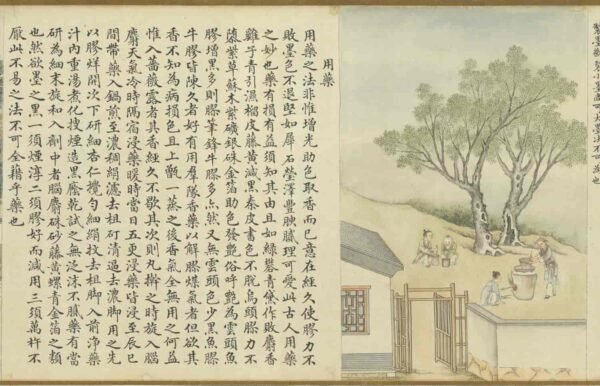 用藥
用藥之法非惟增光助色取香而已意在經久使膠力不
敗墨色不退堅如犀石瑩澤豐腴膩理可愛此古人用藥
之妙也藥有損有益須知其由且如綠礬青黛作敗麝香
雞子青引濕榴皮藤黃減黑秦皮書色不脫烏頭膠力不
隳紫草蘇木紫礦銀硃金箔助色發艷俗呼艷為雲頭魚
膠增黑多則膠筆鋒牛膠多亦然又無雲頭色少黑魚膠
牛膠皆陳久者好有用羣隊香藥以解膠煤氣者但欲其
香不知為病損色且上甑一蒸之後香氣全無用之何益
惟入薔薇露者其香經久不歇其次則丸擀之時旋入腦
麝天氣冷時隔宿浸藥暖時當日五更浸藥皆浸至辰巳
間帶藥入鍋煎至濃稠絹濾去柤矴清過去濃腳用之先
以膠烊開次下研細杏仁攪勻細絹去柤腳入前浄藥
汁內重湯煮化搜煙造黑塵乾試之無泛沫不膩藥有當
研為細末旋和入劑中者腦麝硃砂藤黃螺青金箔之類
也然欲墨之黑一須煙淳二須膠好而減用三須萬杵不
厭此不易之法不可全藉乎藥也